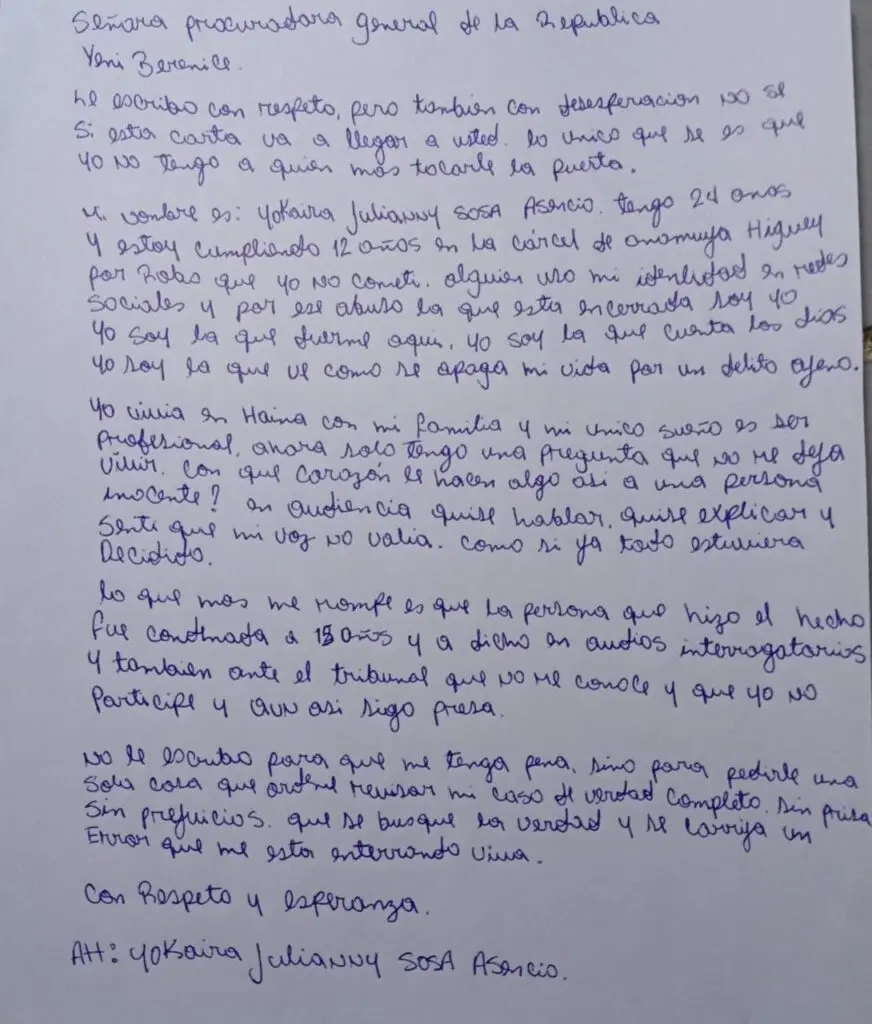 Señora procuradora general de la Republica
Yeni Berenice.
Le escribo con respeto, pero tambien con desesperacion NO se
Si esta carta va a llegar a usted. lo unico que se es que
yo NO tengo a quien mas tocarle la puerta.
Mi nombre es: Yokaira Julianny SOSA Asencio. tengo 24 anos
Y estoy cumpliendo 12 años en la cárcel de anamuya Higuey
por Robo que yo NO cometi. alguien uso mi identidad en redes
Sociales y por ese abuso la que esta encerrada soy yo
Yo soy la que duerme aqui, yo soy la que cuenta los dias
Yo soy la que ve como se apaga mi vida por un delito ajeno.
Yo vivia en Haina con mi familia y mi unico sueño es ser
profesional, ahora solo tengo una pregunta que no me deja
vivir. con que corazón le hacen algo asi a una persona
inocente? en audiencia quise hablar, quise explicar y
Senti que mi voz no valia. como si ya todo estuviera
Decidido.
lo que mas me rompe es que la persona que hizo el hecho
fue condenada a 15 años y a dicho en audios interrogatorios
Y tambien ante el tribunal que NO Me conoce y que yo NO
Participe y aun asi sigo presa.
NO le escribo para que me tenga pena, sino para pedirle una
sola cosa que ordene revisar mi caso de verdad completo. sin prisa
Sin prejuicios. que se busque la verdad y se corrija un
Error que me esta enterrando viva.
Con Respeto y esperanza.
Att: Yokaira Julianny SOSA Asencio.